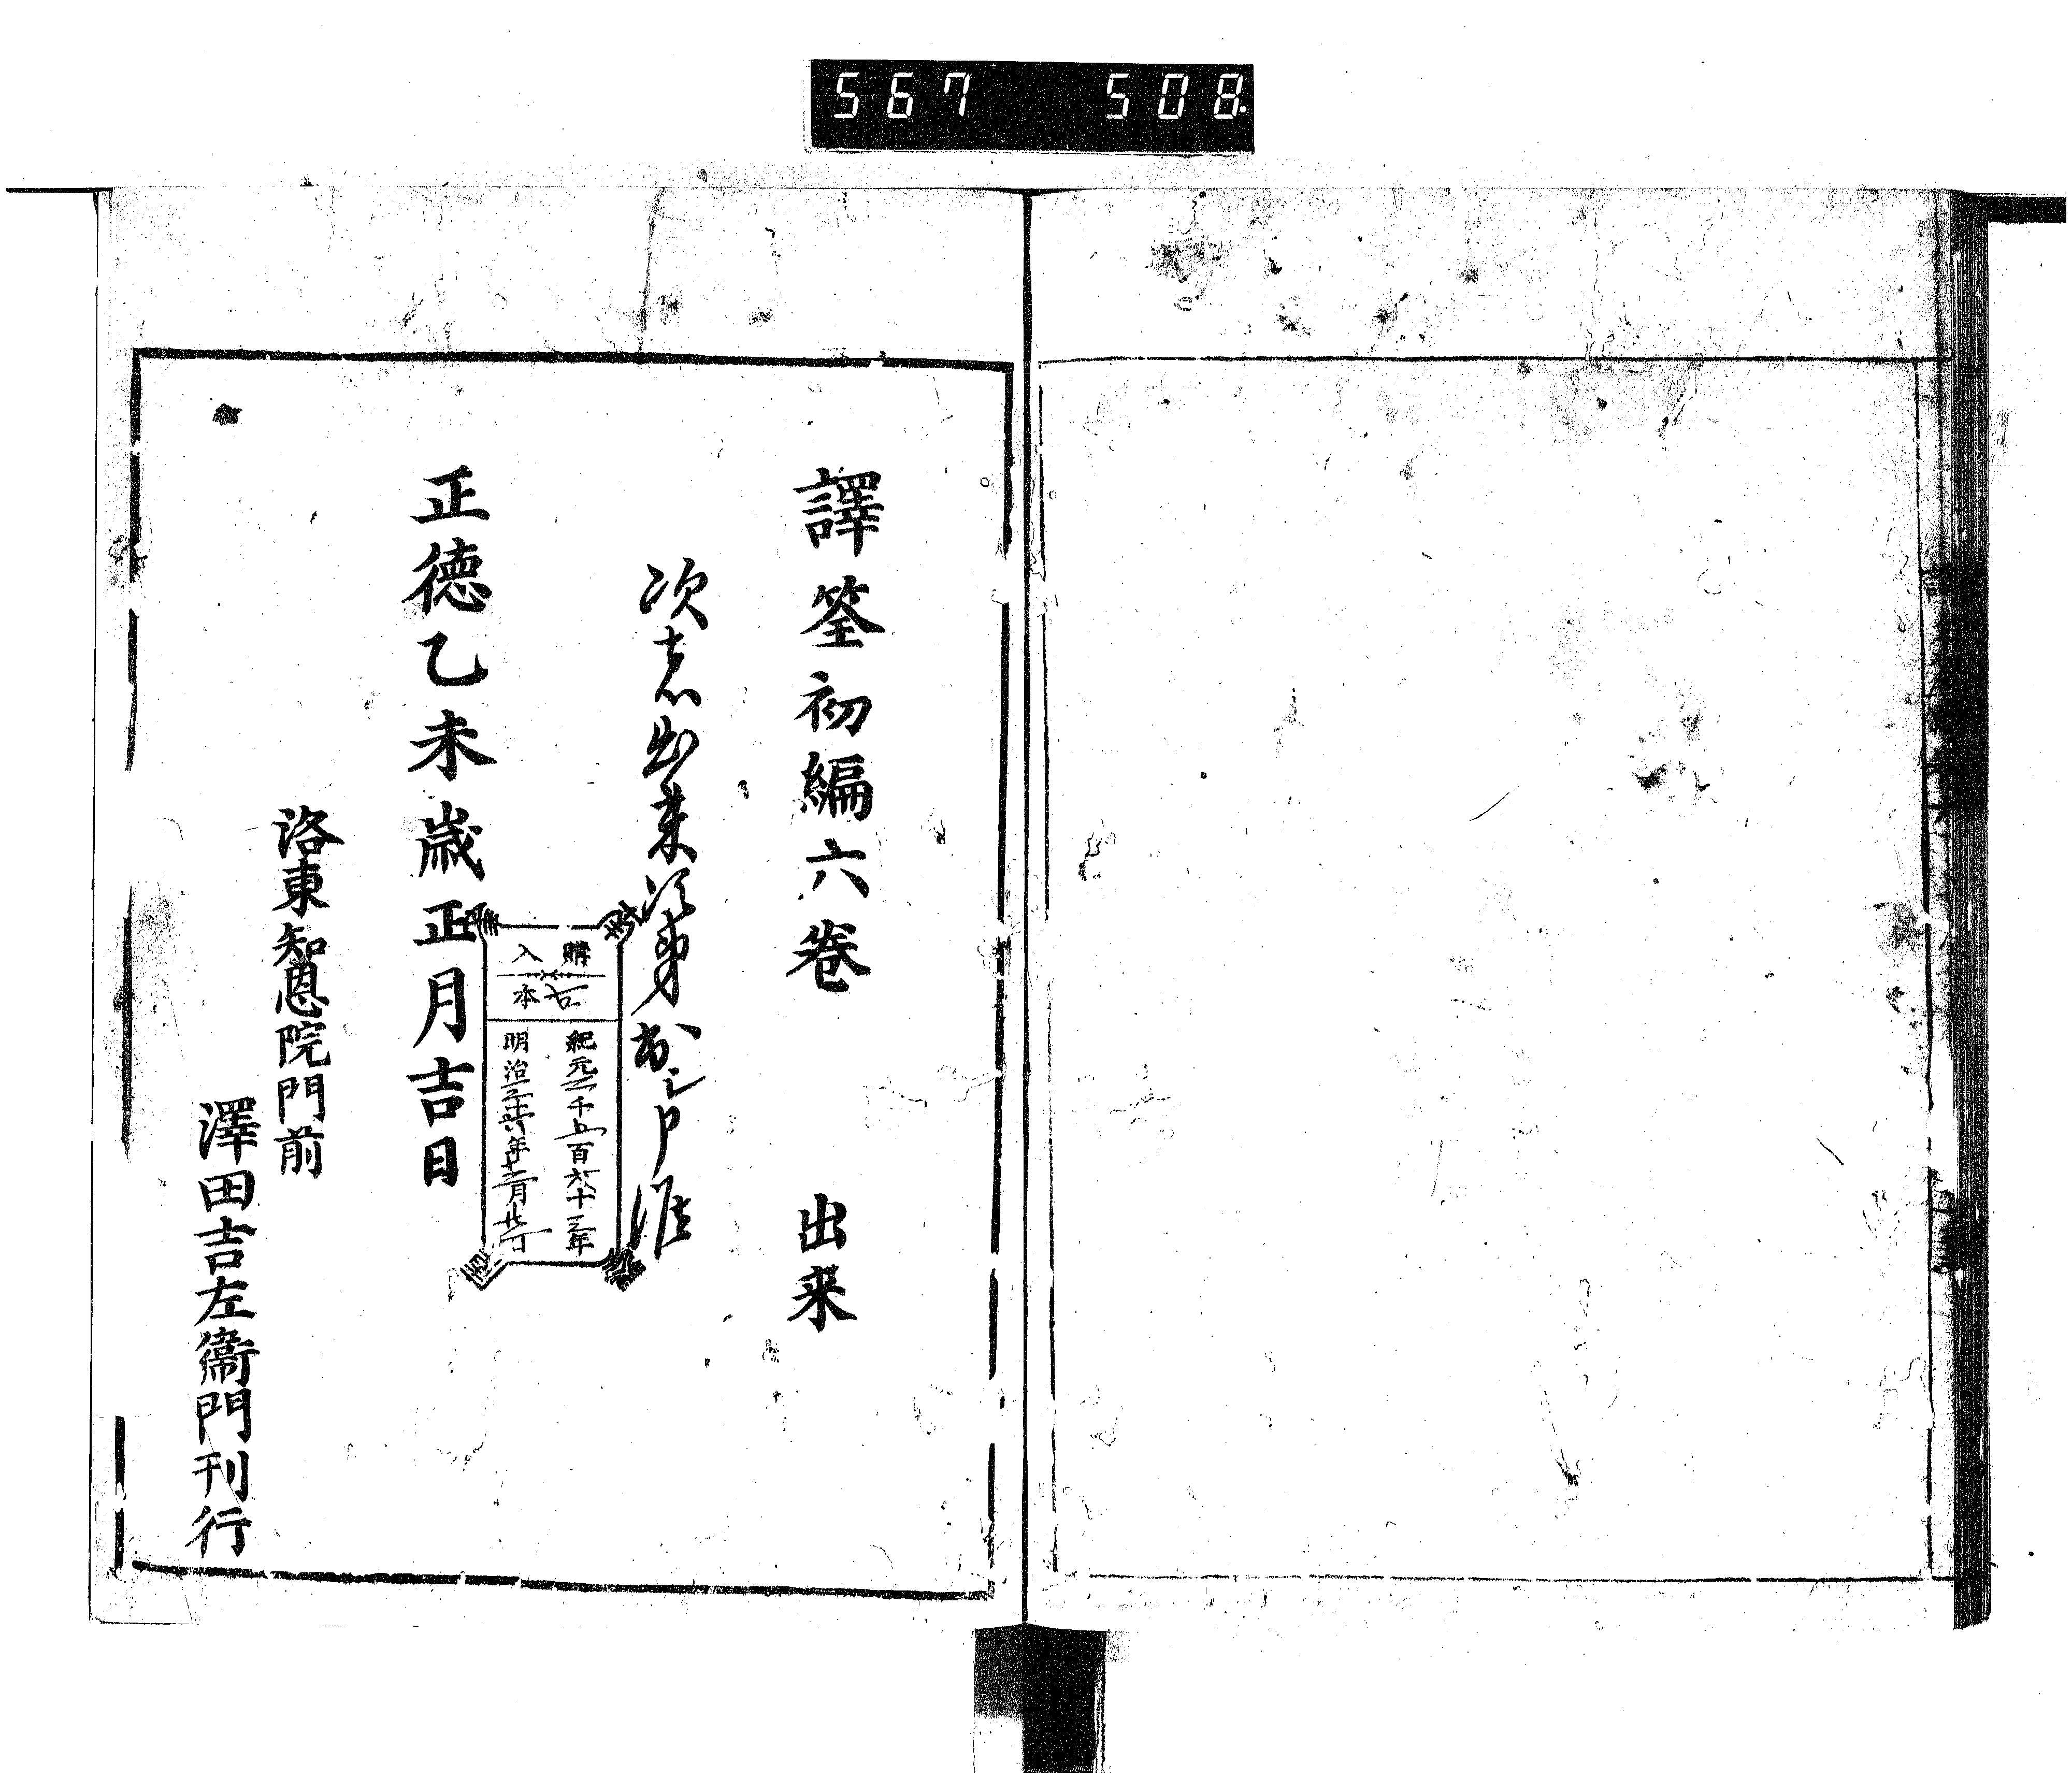 567 508
譯筌初編六巻 出来
次 出来次第 申候
購入
古本
紀元二千五百六十三年
明治三十六年十二月廿 日
正德乙未歳正月吉日
洛東知恩院門前
澤田吉左衞門刊行